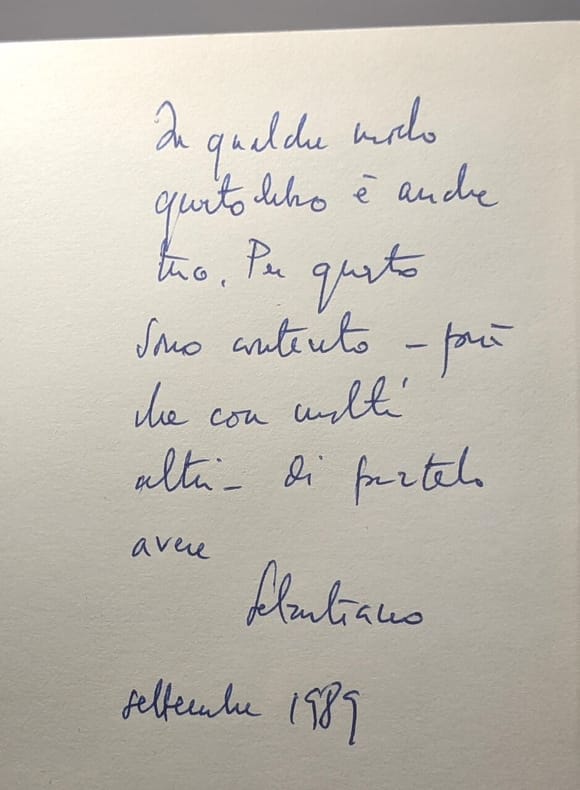 In qualche modo
questo libro è anche
tuo. Per questo
sono contento – più
che con molti
altri – di
avere
Sebastiano
settembre 1989